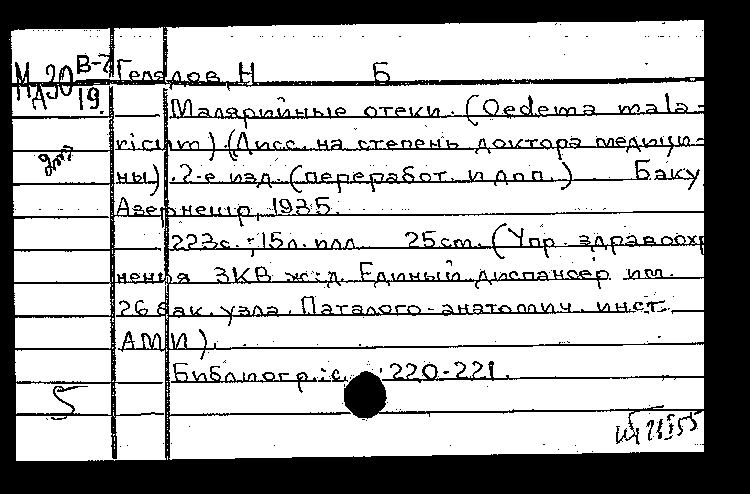 МдЗ0 В-7 Гелядов, Н Б
19.
Малярийные отеки. (Oedema mala-
ricum) (Дисс. на степень доктора медици-
ны). 2-е изд. (переработ. и доп.) Баку
Азернешр, 1935.
223с.; 15л. илл. 25cm. (Упр. здравоохр
нения ЗКВ ж:д. Единый диспансер им.
26 бак. узла. Паталого-анатомич. инст.
АМИ).
Библиогр.: с. 220-221.
5